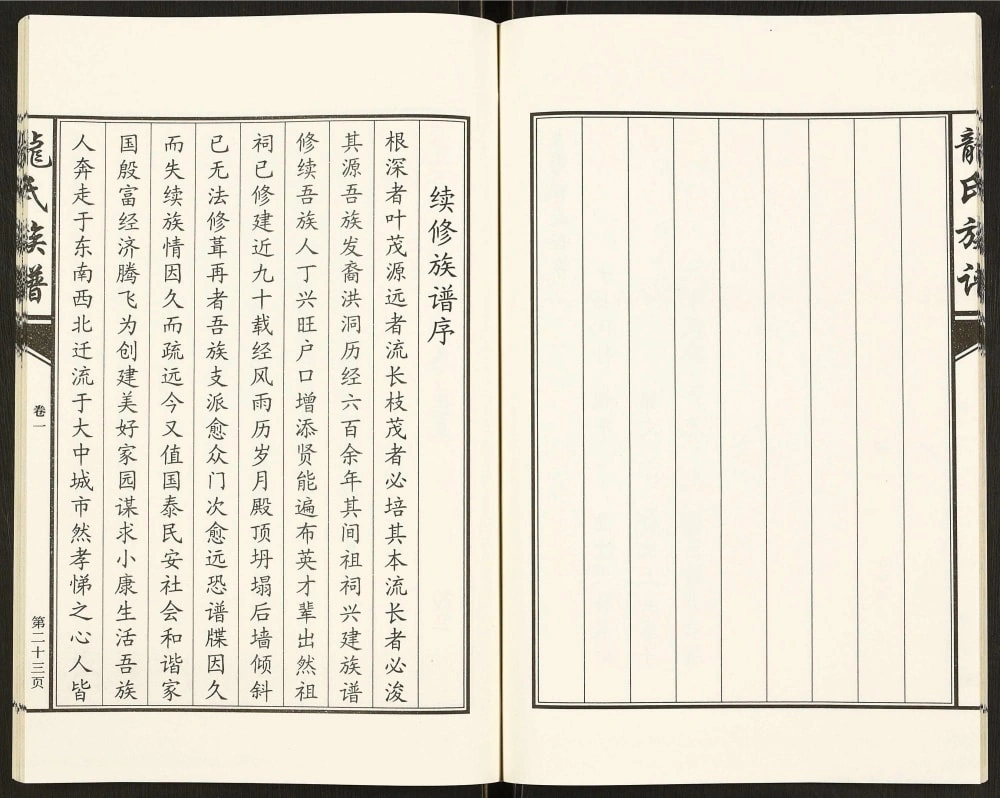 龍氏族谱
续修族谱序
根深者叶茂源远者流长枝茂者必培其本流长者必浚
其源吾族发裔洪洞历经六百余年其间祖祠兴建族谱
修续吾族人丁兴旺户口增添贤能遍布英才辈出然祖
祠已修建近九十载经风雨历岁月殿顶坍塌后墙倾斜
已无法修葺再者吾族支派愈众门次愈远恐谱牒因久
而失续族情因久而疏远今又值国泰民安社会和谐家
国殷富经济腾飞为创建美好家园谋求小康生活吾族
人奔走于东南西北迁流于大中城市然孝悌之心人皆
龍氏族谱
卷一
第二十三页